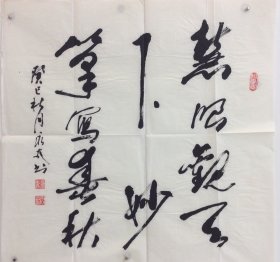 慧眼观天
下妙
笔写春秋
癸巳秋月